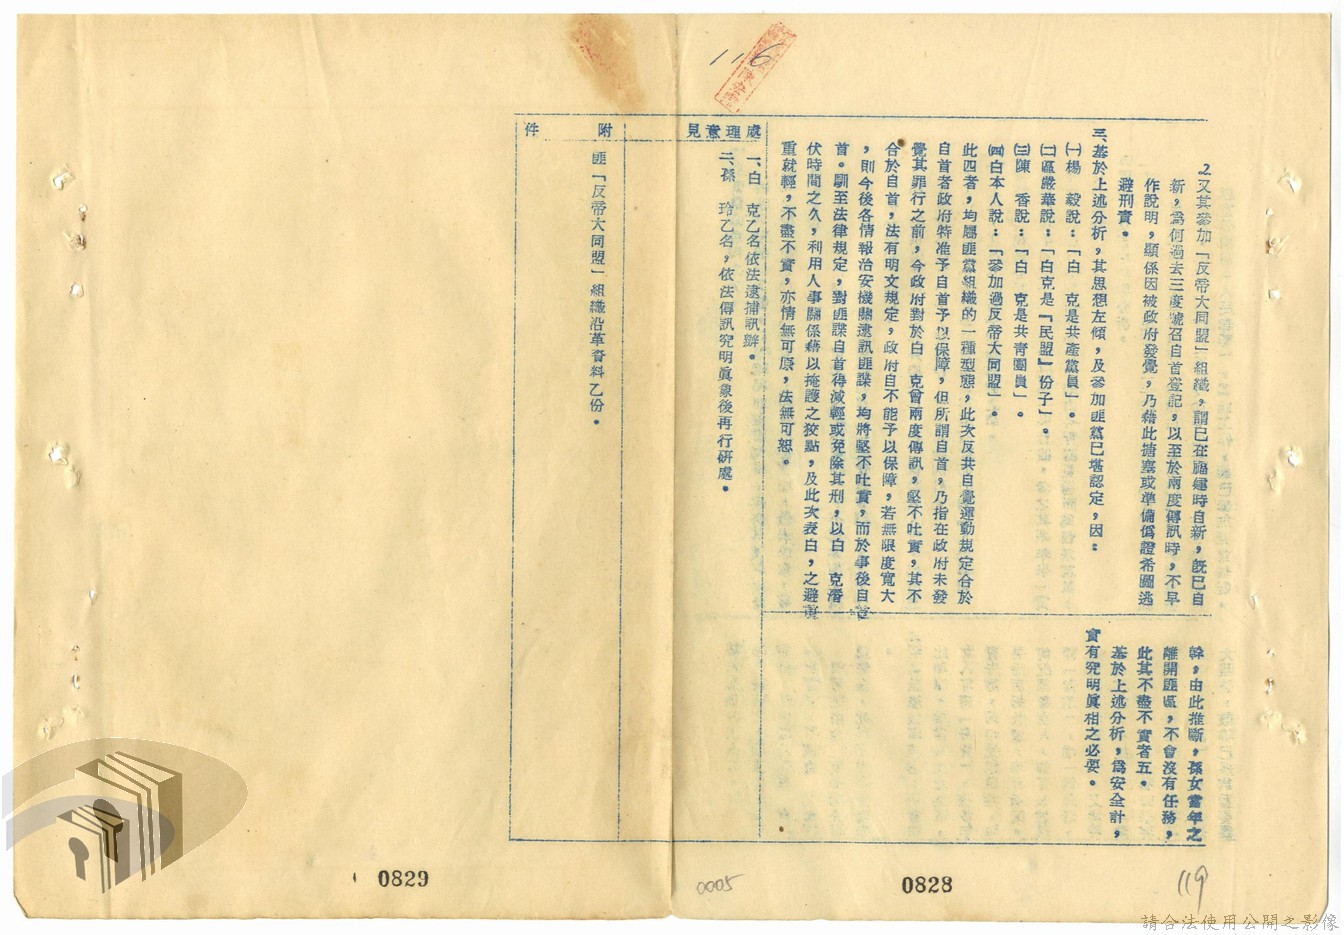 116
2.又其參加「反帝大同盟」組織，謂已在福建時自新，旣已自
新，爲何過去三度號召自首登記，以至於兩度傳訊時，不早
作說明，顯係因被政府發覺，乃藉此搪塞或準備僞證希圖逃
避刑責。
三、基於上述分析，其思想左傾，及參加匪黨已堪認定，因：
㈠楊　毅說：「白　克是共產黨員」。
㈡區嚴華說：「白克是『民盟』份子」。
㈢陳　香說：「白　克是共青團員」。
㈣白本人說：「參加過反帝大同盟」。
此四者，均屬匪黨組織的一種型態，此次反共自覺運動規定合於
自首者政府特准予自首予以保障，但所謂自首，乃指在政府未發
覺其罪行之前，今政府對於白　克曾兩度傳訊，堅不吐實，其不
合於自首，法有明文規定，政府自不能予以保障，若無限度寬大
，則今後各情報治安機關逮訊匪諜，均將堅不吐實，而於事後自首
首。馴至法律規定，對匪諜自首得減輕或免除其刑，以白　克潛
伏時間之久，利用人事關係藉以掩護之狡點，及此次表白，之避重
重就輕，不盡不實，亦情無可原，法無可恕。
幹，由此推斷，孫女當年之
離開匪區，不會沒有任務，
此其不盡不實者五。
基於上述分析，爲安全計，
實有究明眞相之必要。
處理意見
一、白　克乙名依法逮捕訊辦。
二、孫　玲乙名，依法傳訊究明眞象後再行研處。
附件
匪「反帝大同盟」組織沿革資料乙份。
0829
0005
0828
119
請合法使用公開之影像